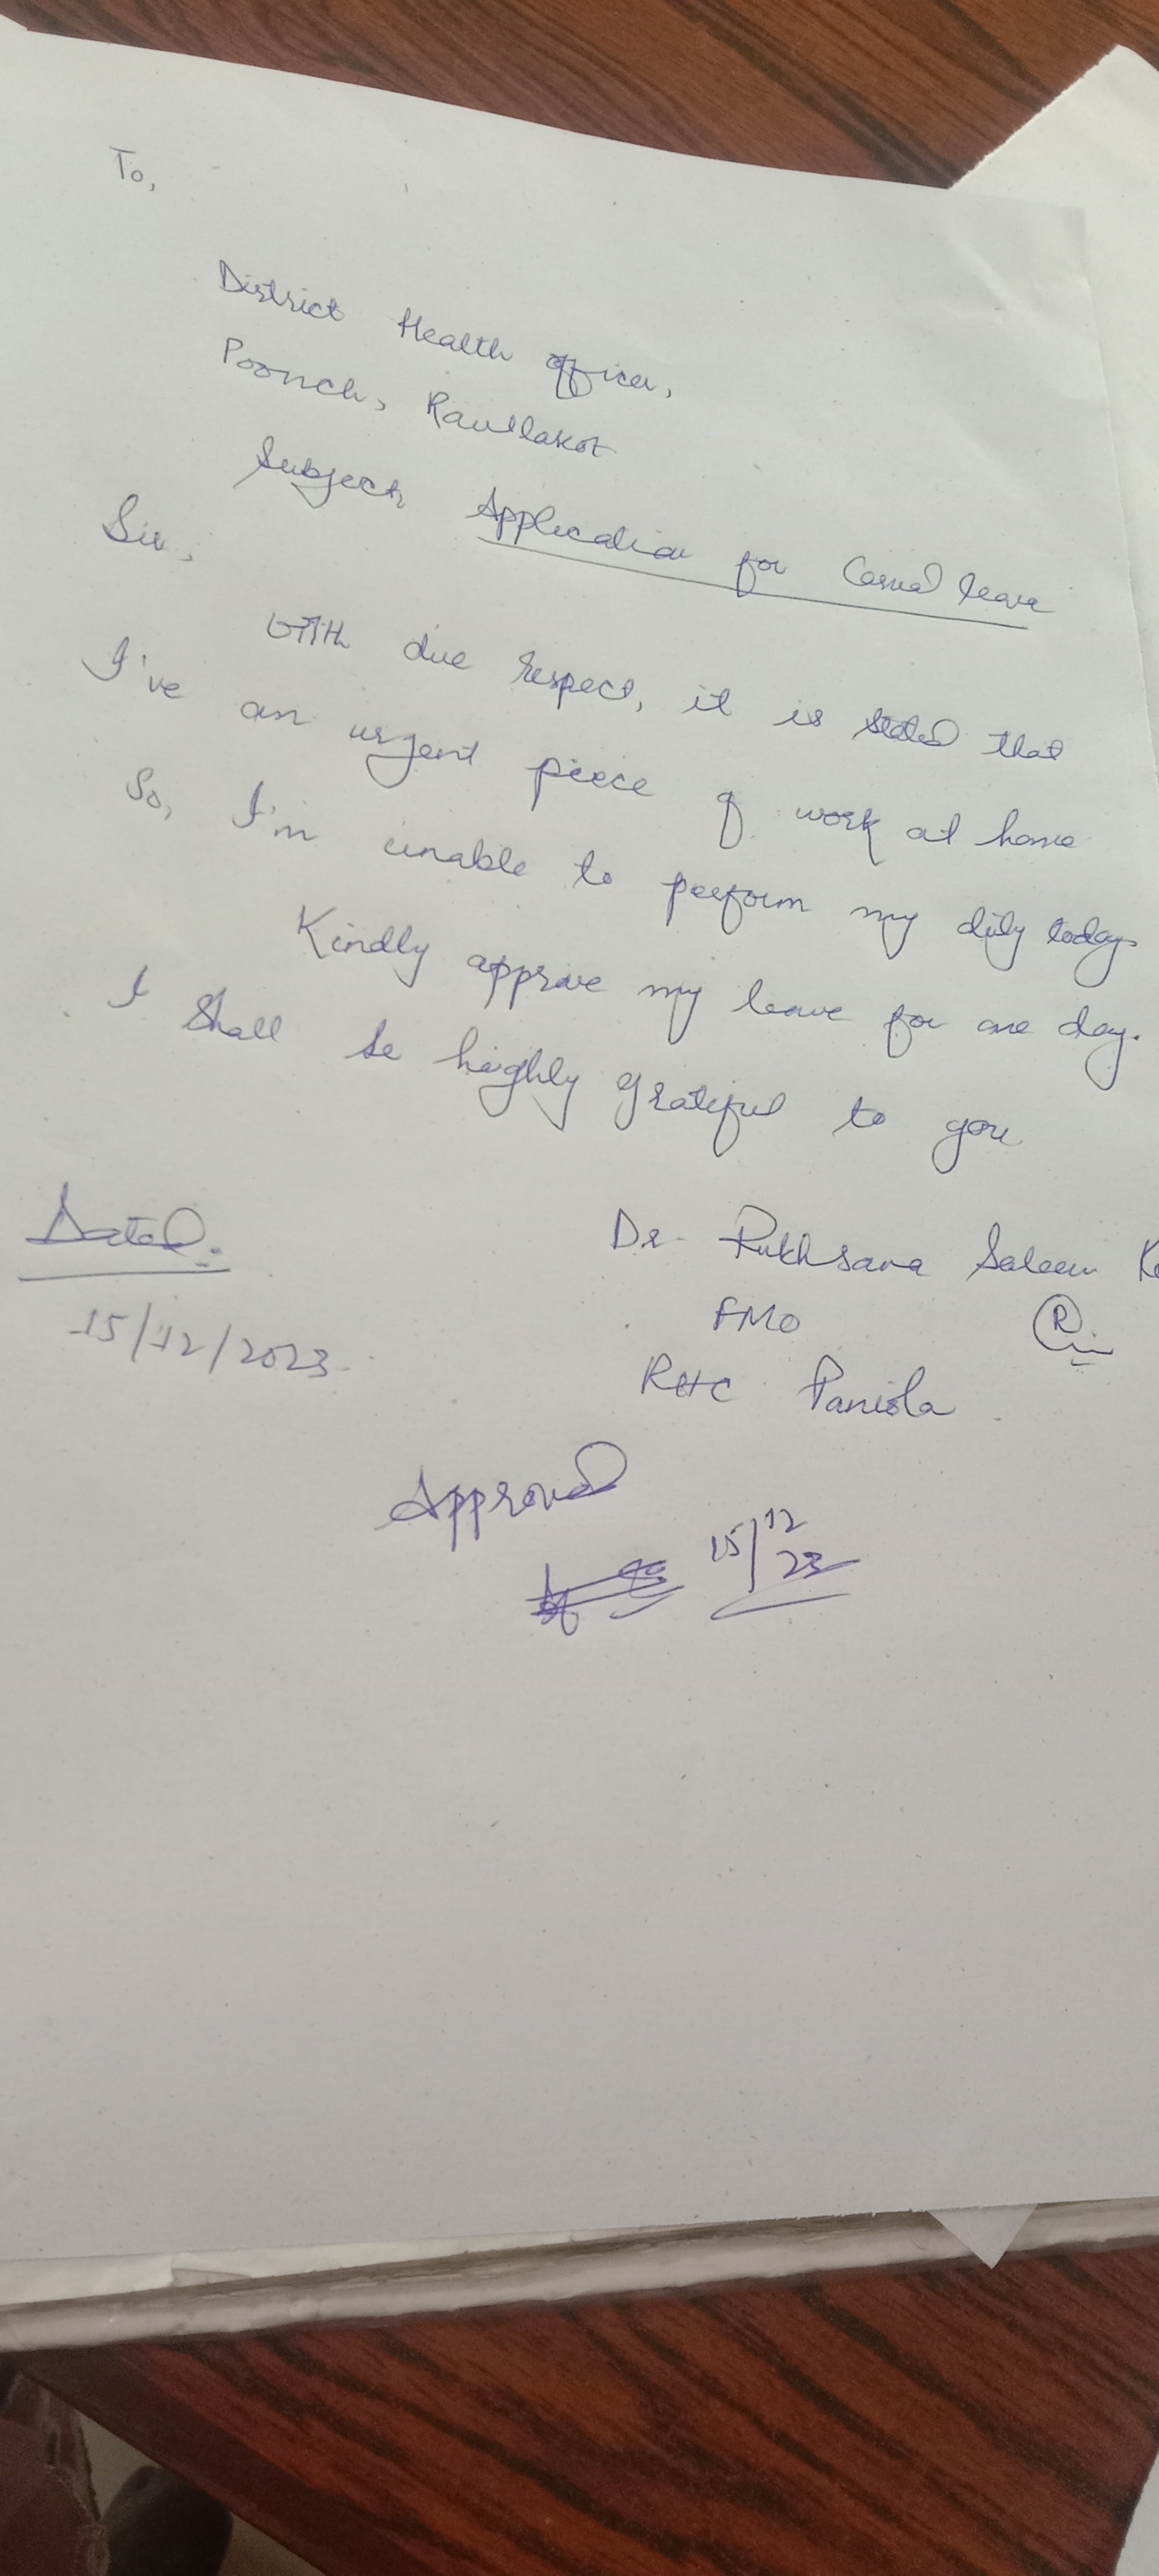 To,
District Health officer,
Poonch, Rawalakot
Subject, Application for Casual leave
Sir,
With due respect, it is stated that
I've an urgent piece of work at home
So, I'm unable to perform my duty today.
Kindly approve my leave for one day.
I shall be heighly grateful to you
Dated:
15/12/2023
Dr. Rukhsana Saleem
FMO
RHC Paniola
Approved
15/12/23